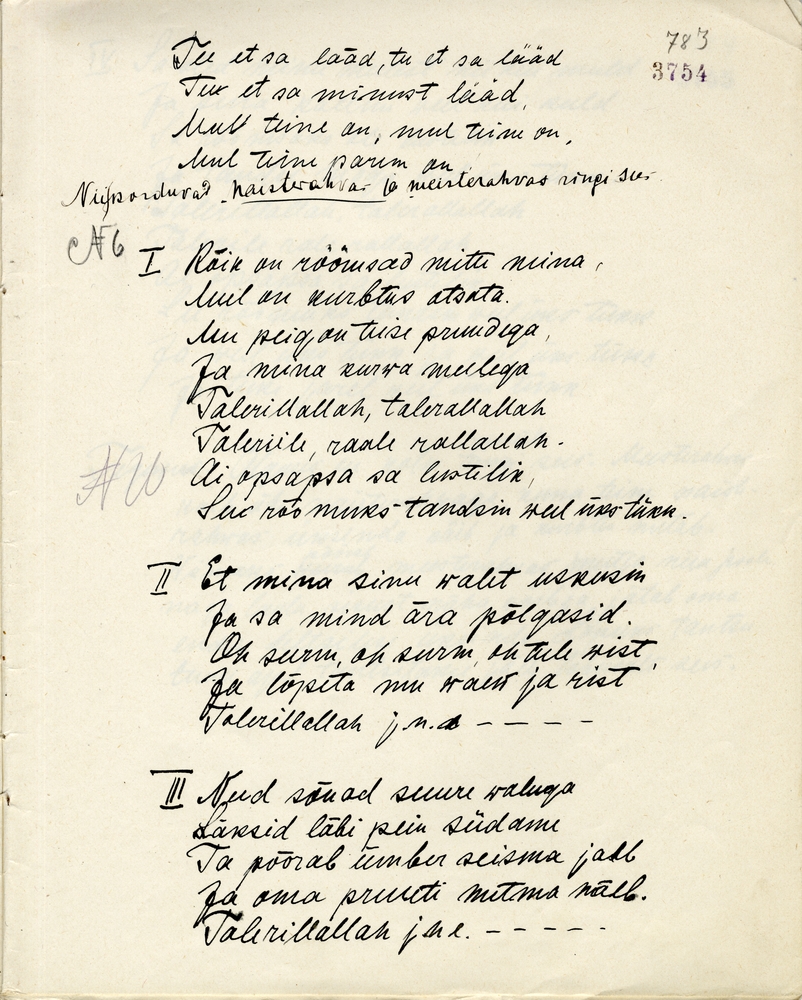 783
3754
Tee et sa lääd, tee et sa lääd
Tee et sa minust lääd,
Mull teine on, mul teine on,
Mul teine parem on
Nii korduvad naisterahvas ja meisterahvas ringi sees
№ 6
I Kõik on rõõmsad mitte mina,
Meil on kurbtus otsata.
Mu peig on teise pruudega,
Ja mina kurwa meelega
Talerillallah, talerallallah
Taleriile, raale rallallah.
Ai opsapsa sa lustilik,
See rõõmuks tandsin weel üks tükk.
II Et mina sinu walet uskusin
Ja sa mind ära põlgasid.
Oh surm, oh surm, oh tule wist,
Ja lõpeta mu waew ja rist
Talerillallah j.n.e – – – –
III Need sõnad suure waluga
Läksid läbi pein südame
Ta pöörab ümber seisma jääb
Ja oma pruuti mitma näeb.
Talerillallah j n e. – – – – –